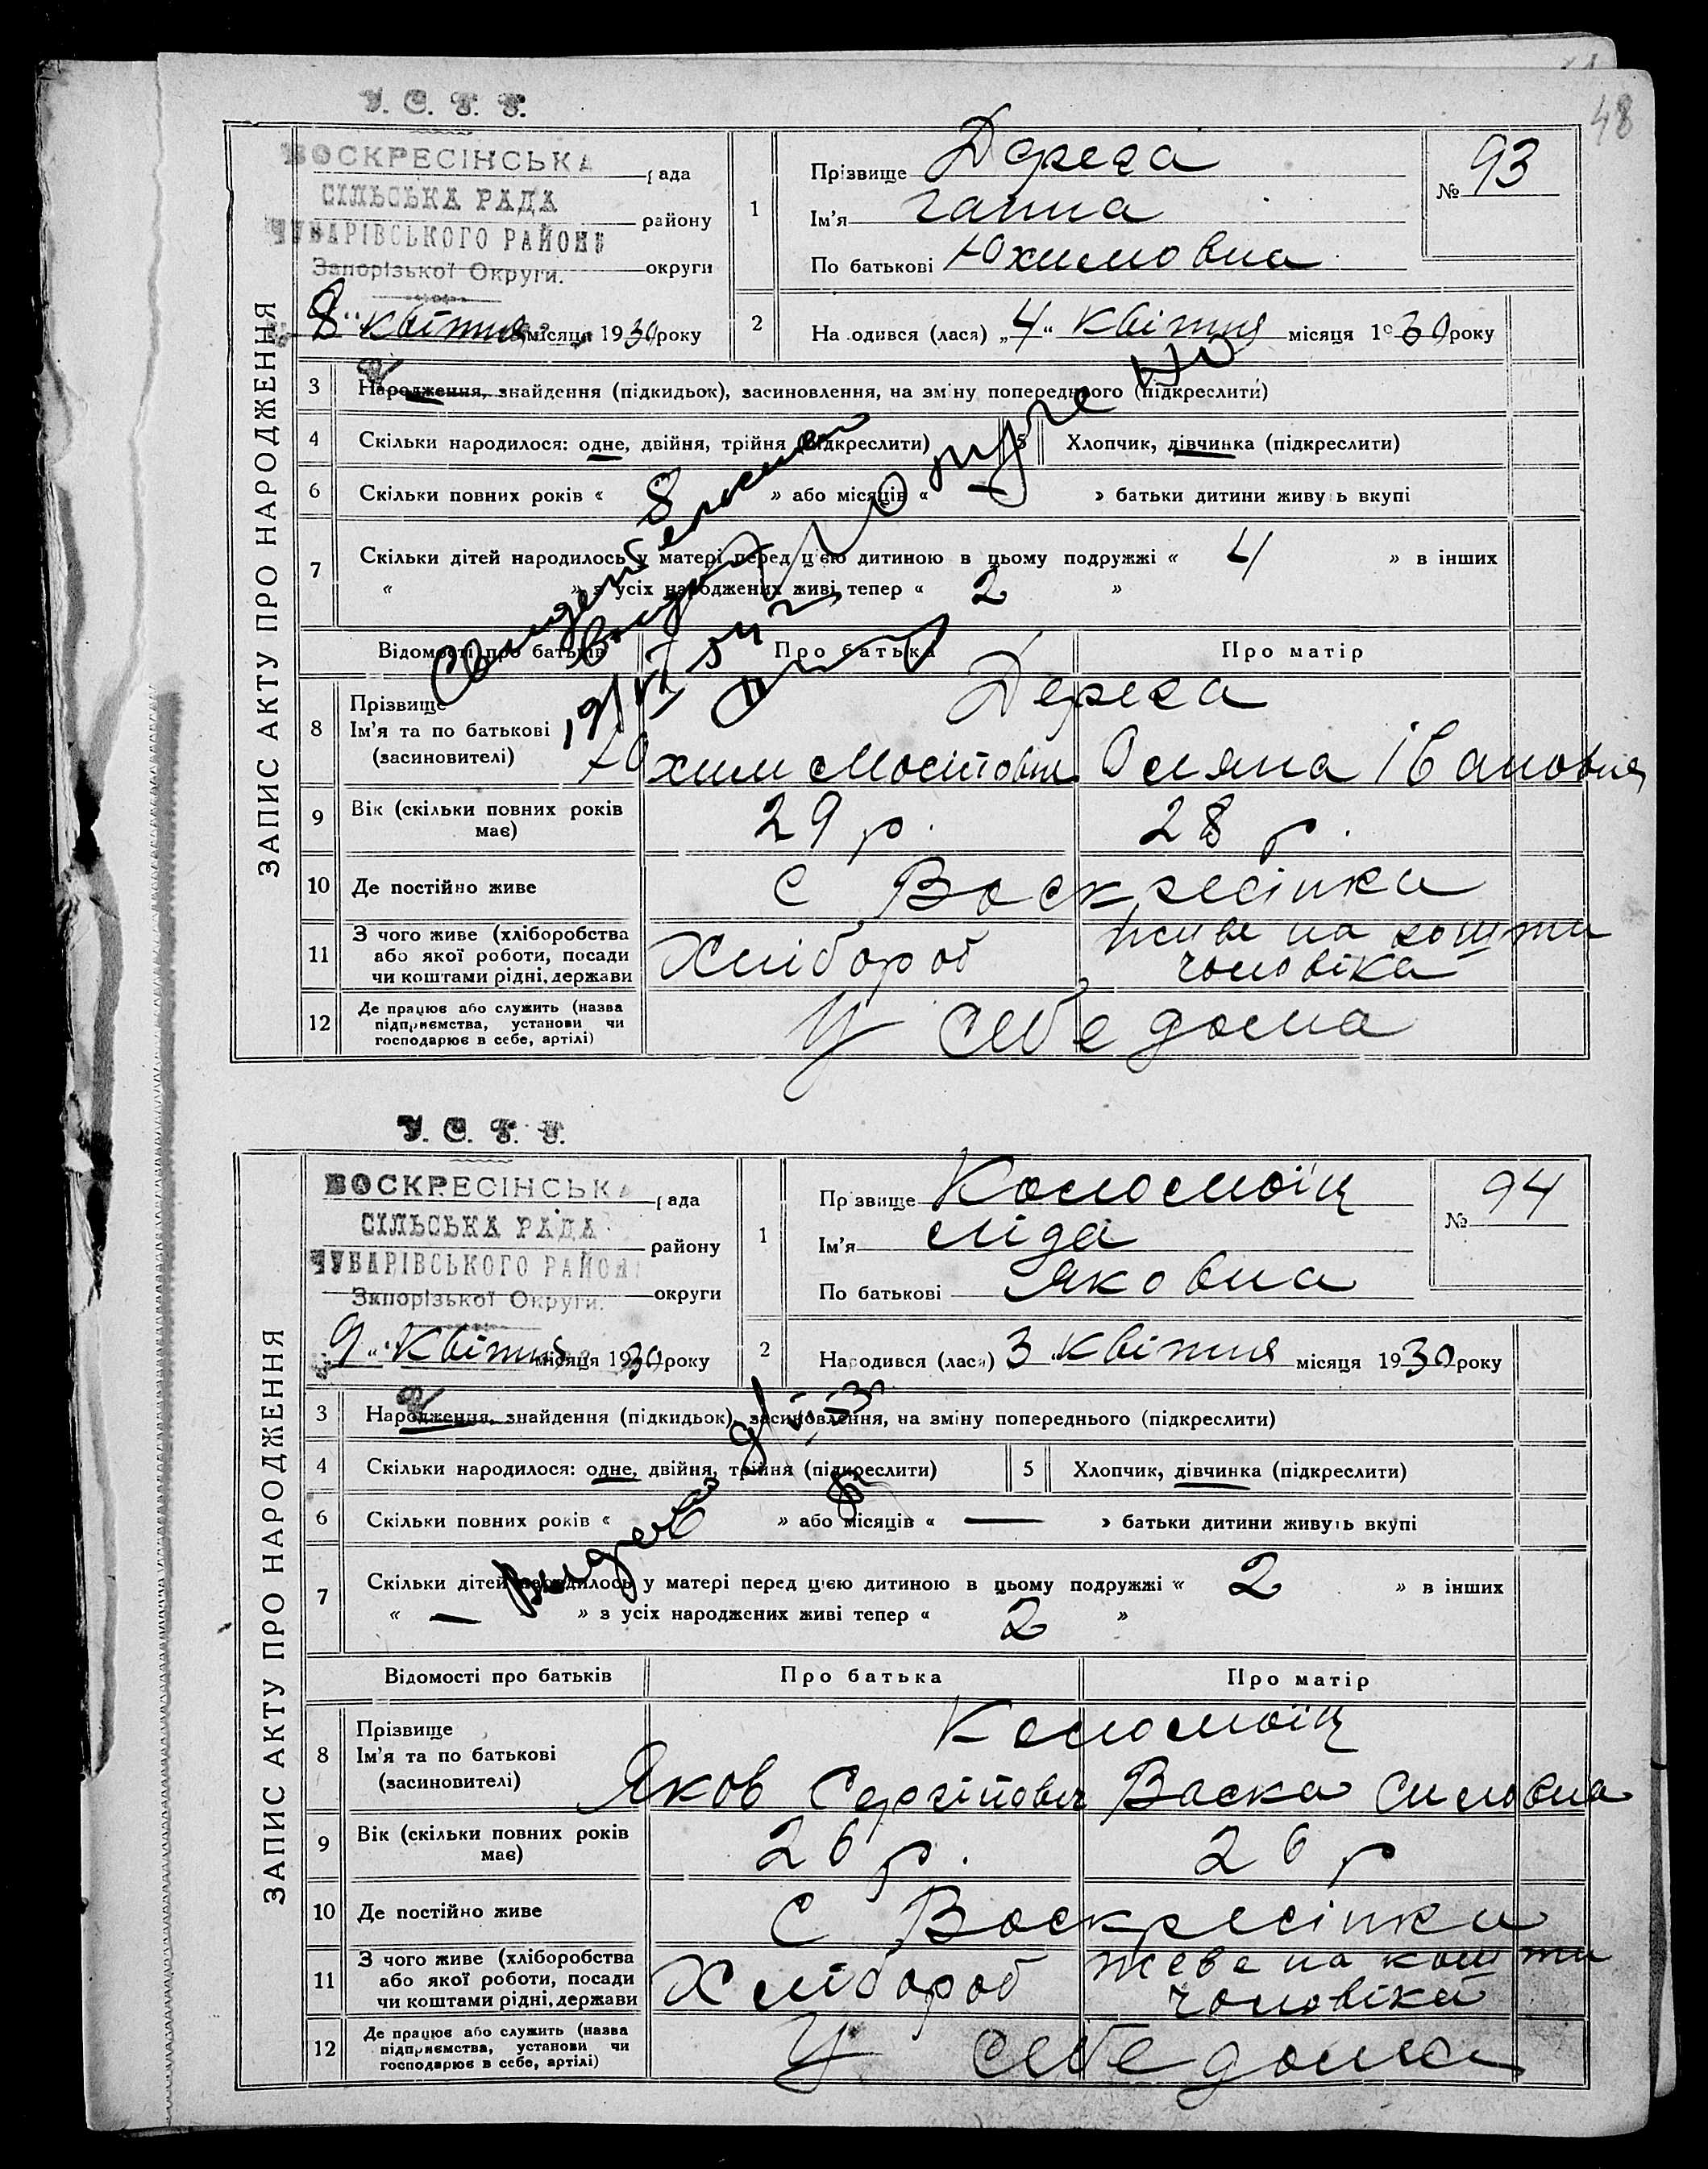 48
У. С. Р. Р.
ВОСКРЕСІНСЬКА рада
СІЛЬСЬКА РАДА району
ЧУБАРІВСЬКОГО РАЙОНУ
Запорізької Округи. округи
8 " квітня місяця 1930 року
ЗАПИС АКТУ ПРО НАРОДЖЕННЯ
1 Прізвище Дерега
Ім'я Ганна
По батькові Юхимовна
№ 93
2 На одився (лася) „4" квітня місяця 1930 року
3 Народження, знайдення (підкидьок), засиновлення, на зміну попереднього (підкреслити)
4 Скільки народилося: одне, двійня, трійня (підкреслити) 5 Хлопчик, дівчинка (підкреслити)
6 Скільки повних років « 8 » або місяців « — » батьки дитини живуть вкупі
7 Скільки дітей народилось у матері перед цією дитиною в цьому подружжі « 4 » в інших
« » з усіх народжених живі тепер « 2 »
Відомості про батьків Про батька Про матір
8 Прізвище Дерега
Ім'я та по батькові
(засиновителі) Юхим Мосійович Оляна Івановна
9 Вік (скільки повних років має) 29 р. 28 р.
10 Де постійно живе С Воскресінка
11 З чого живе (хліборобства
або якої роботи, посади
чи коштами рідні, держави Хлібороб живе на кошти
чоловіка
12 Де працює або служить (назва
підприємства, установи чи
господарює в себе, артілі) У себе дома
У. С. Р. Р.
ВОСКРЕСІНСЬКА рада
СІЛЬСЬКА РАДА району
ЧУБАРІВСЬКОГО РАЙОНУ
Запорізької Округи. округи
9 " квітня місяця 1930 року
ЗАПИС АКТУ ПРО НАРОДЖЕННЯ
1 Пр звище Коломоїц
Ім'я Ліда
По батькові Яковна
№ 94
2 Народився (лася) 3 квітня місяця 1930 року
3 Народження, знайдення (підкидьок), засиновлення, на зміну попереднього (підкреслити)
4 Скільки народилося: одне, двійня, трійня (підкреслити) 5 Хлопчик, дівчинка (підкреслити)
6 Скільки повних років « » або місяців « — » батьки дитини живуть вкупі
7 Скільки дітей народилось у матері перед цією дитиною в цьому подружжі « 2 » в інших
« — » з усіх народжених живі тепер « 2 »
Відомості про батьків Про батька Про матір
8 Прізвище Коломоїц
Ім'я та по батькові
(засиновителі) Яков Сергійович Васка Силовна
9 Вік (скільки повних років має) 26 р. 26 р
10 Де постійно живе С Воскресінка
11 З чого живе (хліборобства
або якої роботи, посади
чи коштами рідні, держави Хлібороб жеве на кошти
чоловіка
12 Де працює або служить (назва
підприємства, установи чи
господарює в себе, артілі) У себе дома